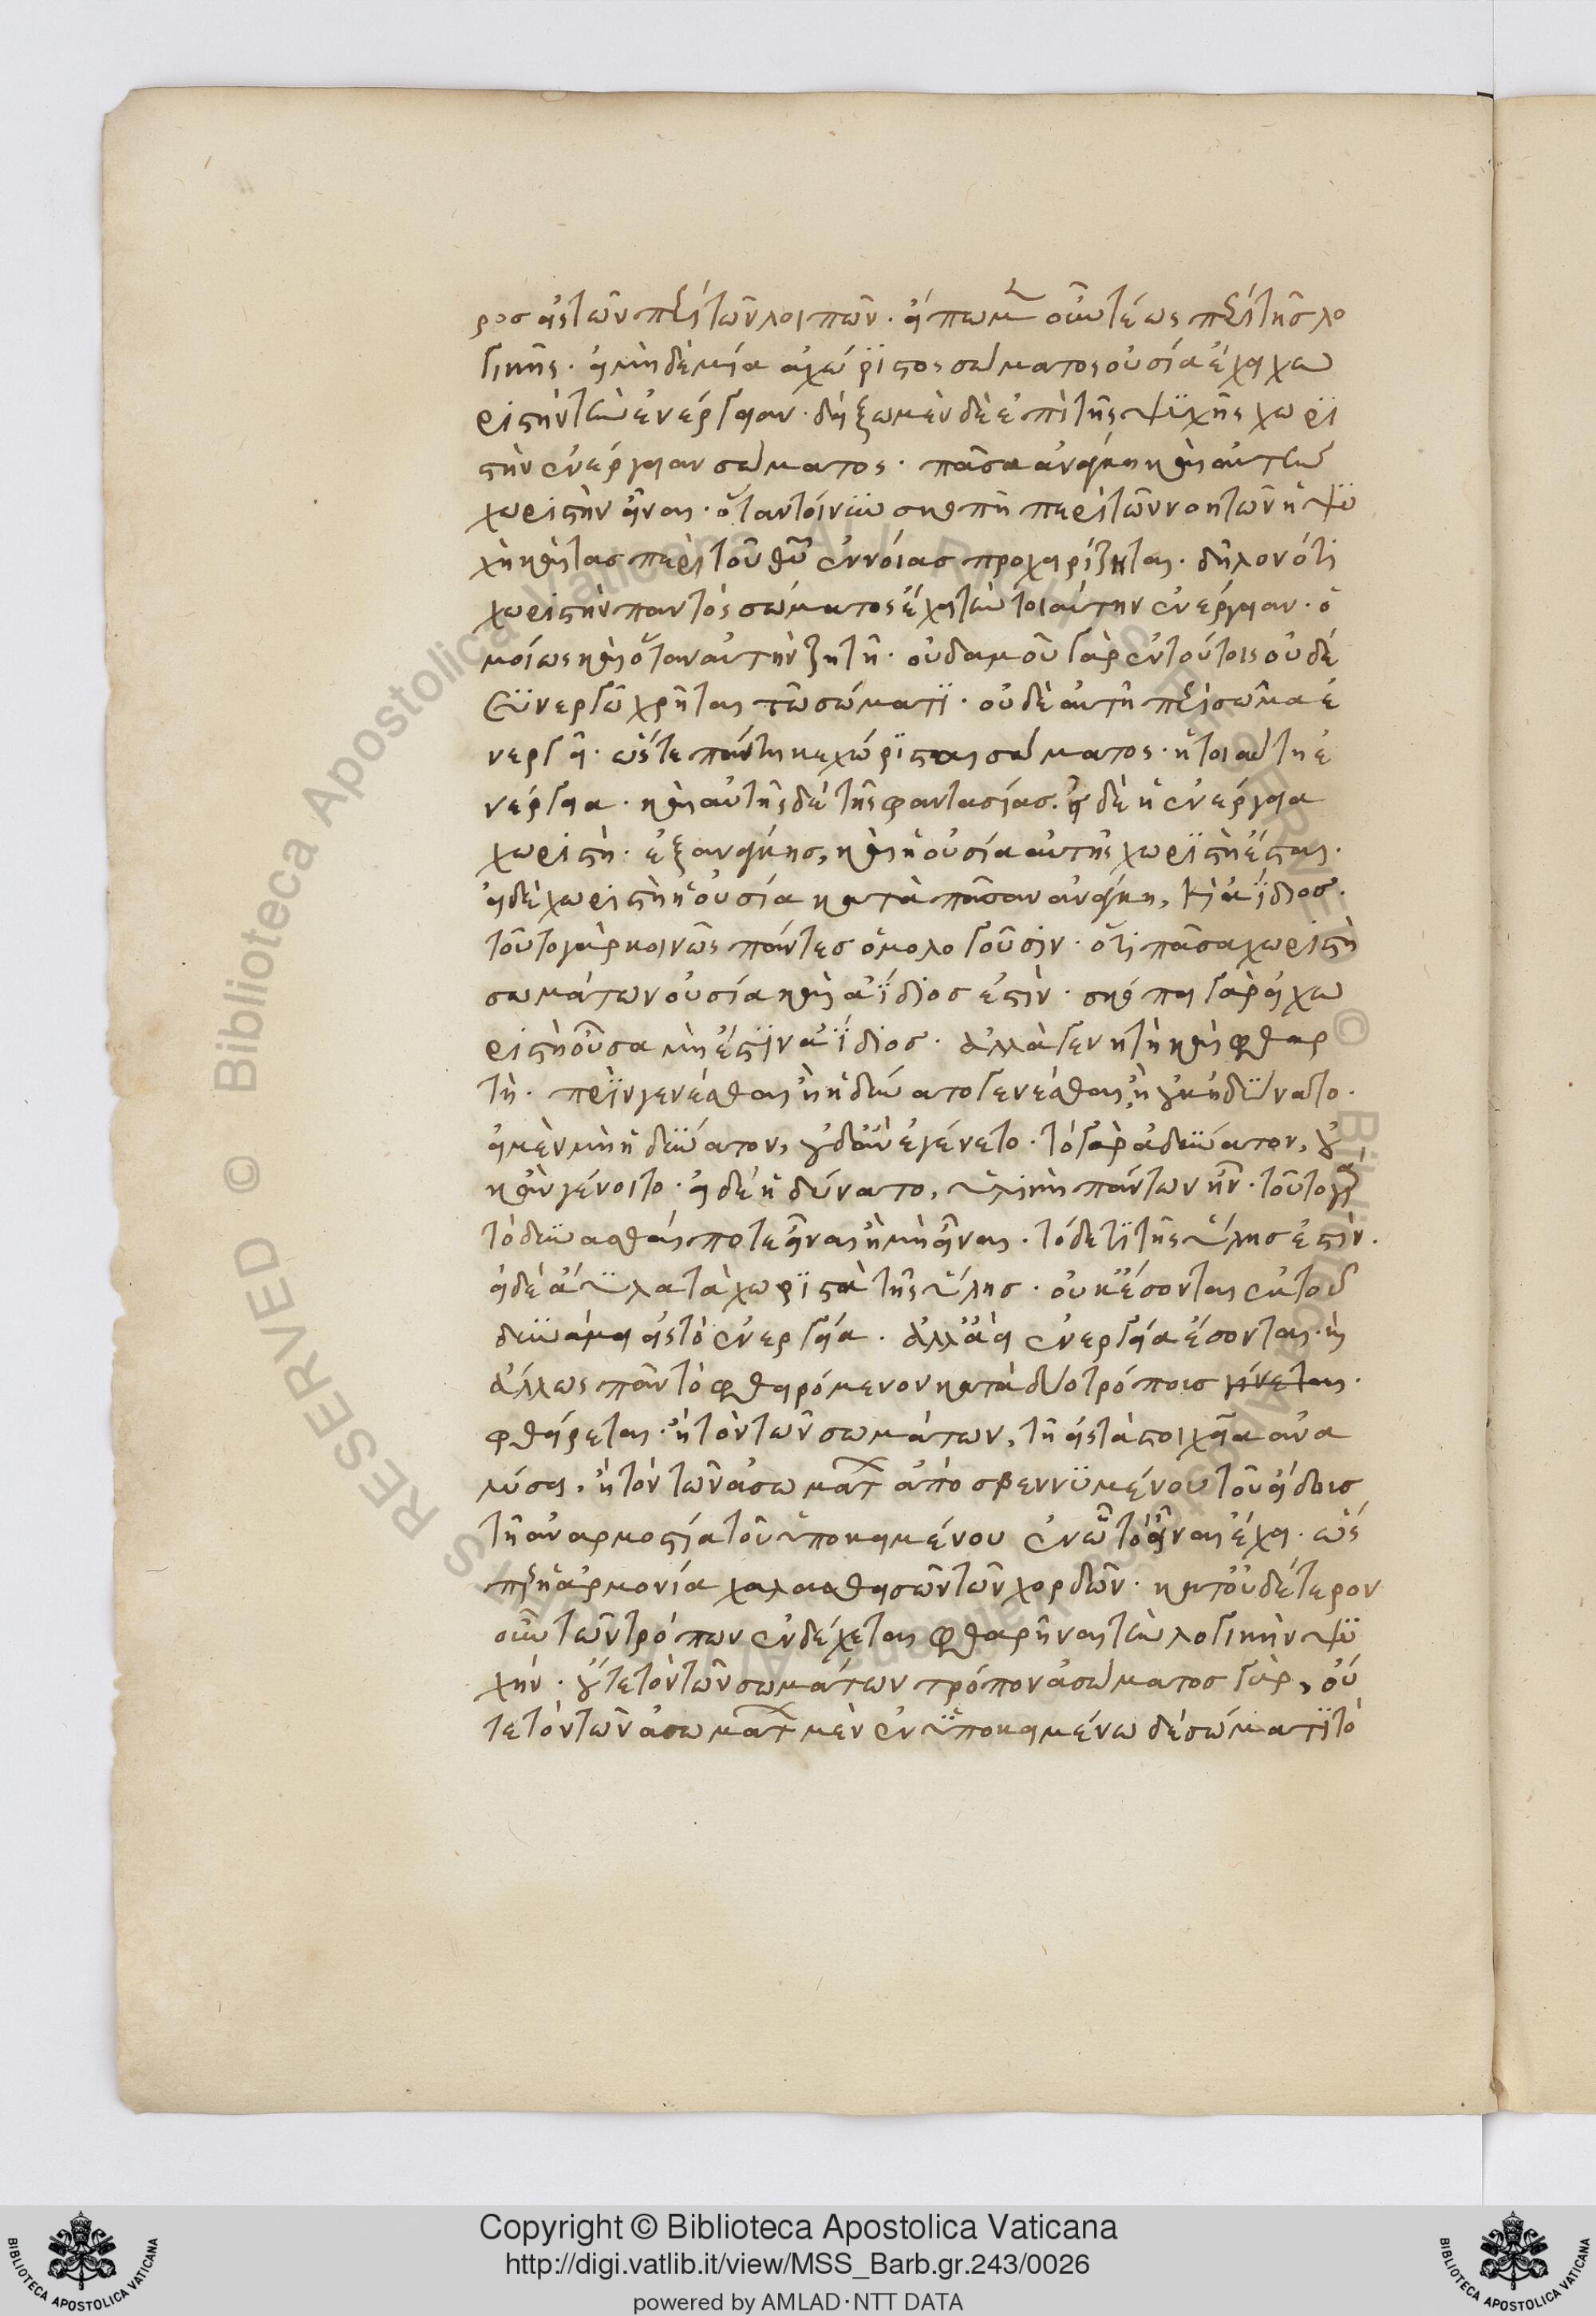 ρος εἰς τῶν περὶ τῶν λοιπῶν. εἴπωμεν οὖν τέως περὶ τῆς λο
γικῆς. εἰ μηδεμία ἀχώριστος σώματος οὐσία ἔχει χω
ριστὴν τὴν ἐνέργειαν. δείξωμεν δὲ ἐπὶ τῆς ψυχῆς χωρι
στὴν ἐνέργειαν σώματος. πᾶσα ἀνάγκη καὶ αὐτὴν
χωριστὴν εἶναι. ὅταν τοίνυν σκοπῇ περὶ τῶν νοητῶν ἡ ψυ
χὴ καὶ τὰς περὶ τοῦ θυ ἐννοίας προχειρίζηται. δῆλον ὅτι
χωριστὴν παντὸς σώματος ἔχει τὴν τοιαύτην ἐνέργειαν. ὁ
μοίως καὶ ὅταν αὐτὴν ζητῇ. οὐδαμοῦ γὰρ ἐν τούτοις οὐδὲ
συνεργῷ χρῆται τῷ σώματι. οὐδὲ αὐτὴ περὶ σῶμα ἐ
νεργεῖ. ὥστε πάντη κεχώρισται σώματος. ἡ τοιαύτη ἐ
νέργεια. καὶ αὐτῆς δὲ τῆς φαντασίας. εἰ δὲ ἡ ἐνέργεια
χωριστή. ἐξ ἀνάγκης, καὶ ἡ οὐσία αὐτῆς χωριστὴ ἔσται.
εἰ δὲ χωριστὴ ἡ οὐσία κατὰ πᾶσαν ἀνάγκη, κ ἀΐδιος.
τοῦτο γὰρ κοινῶς πάντες ὁμολογοῦσιν. ὅτι πᾶσα χωριστὴ
σωμάτων οὐσία καὶ ἀΐδιος ἐστίν. σκόπει γὰρ εἰ χω
ριστὴ οὖσα μὴ ἔστιν ἀΐδιος. ἀλλὰ γενητὴ καὶ φθαρ
τή. πρὶν γενέσθαι ἢ ἠδύνατο γενέσθαι, ἢ οὐκ ἠδύνατο.
εἰ μὲν μὴ ἠδύνατον, οὐδ' ἂν ἐγένετο. τὸ γὰρ ἀδύνατον, οὐ
κ ἂν γένοιτο. εἰ δὲ ἠδύνατο, ὑλικὴ πάντων ἦν. τοῦτο γὰρ
τὸ δύνασθαί ποτε εἶναι ἢ μὴ εἶναι. τὸ δέ τι τῆς ὕλης ἐστίν.
εἰ δὲ ἄϋλα τὰ χωριστὰ τῆς ὕλης. οὐκ ἔσονται ἐκ τοῦ
δυνάμει εἰς τὸ ἐνεργείᾳ. ἀλλ' ἀεὶ ἐνεργείᾳ ἔσονται. ἢ
ἄλλως πᾶν τὸ φθειρόμενον κατὰ δύο τρόποις γίνεται.
φθείρεται. ἢ τὸν τῶν σωμάτων, τῇ εἰς τὰ στοιχεῖα ἀνα
λύσει. ἢ τὸν τῶν ἀσωμάτ ἀποσβεννυμένου τοῦ εἴδους
τῇ ἀναρμοστίᾳ τοῦ ὑποκειμένου ἐν ᾧ τὸ εἶναι ἔχει. ὥς
περ ἡ ἁρμονία χαλασθεισῶν τῶν χορδῶν. κατ' οὐδέτερον
οὖν τῶν τρόπων ἐνδέχεται φθαρῆναι τὴν λογικὴν ψυ
χήν. οὔτε τὸν τῶν σωμάτων τρόπον ἀσώματος γάρ, οὔ
τε τὸν τῶν ἀσωμάτ μὲν ἐν ὑποκειμένῳ δὲ σώματι τὸ
Copyright © Biblioteca Apostolica Vaticana
http://digi.vatlib.it/view/MSS_Barb.gr.243/0026
powered by AMLAD·NTT DATA